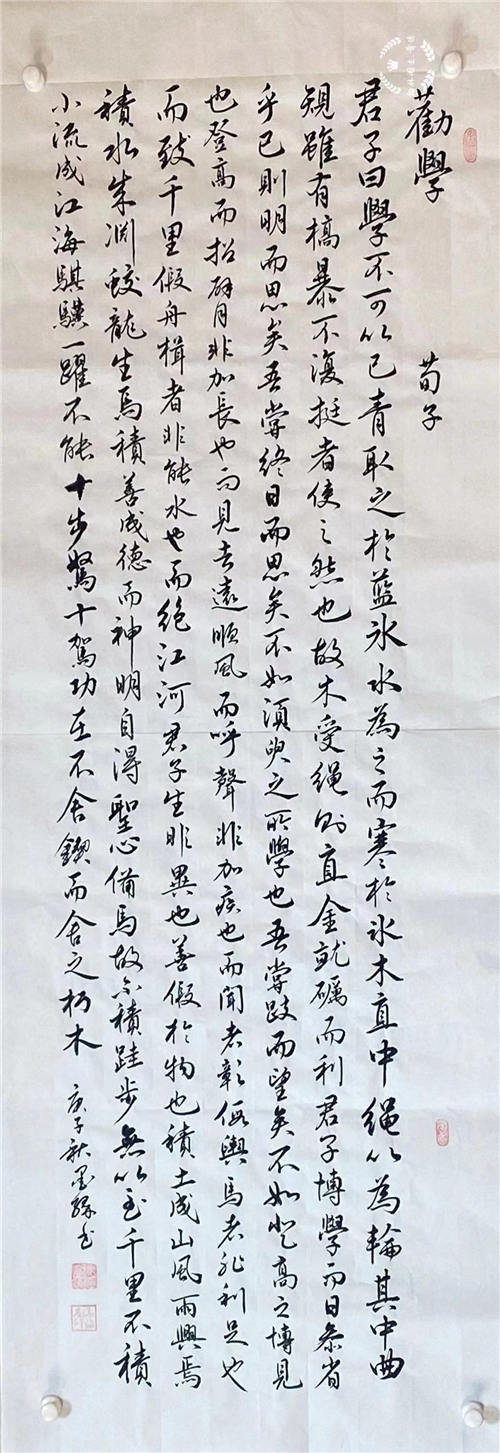 勸學 荀子
君子曰學不可以已青取之於蓝冰水為之而寒於冰木直中绳以為輪其中曲
規雖有槁暴不復挺者使之然也故木受绳則直金就礪而利君子博學而日叅省
乎己則明而思矣吾嘗終日而思矣不如須臾之所學也吾嘗跂而望矣不如登高之博見
也登高而招臂非加長也而見者遠順風而呼聲非加疾也而聞者彰假輿馬者非利足也
而致千里假舟楫者非能水也而絶江河君子生非異也善假於物也積土成山風雨興焉
積水成渊蛟龍生焉積善成德而神明自得聖心備焉故不積跬步無以至千里不積
小流成江海騏驥一躍不能十步駑十駕功在不舍鍥而舍之朽木 庚子秋墨緣书